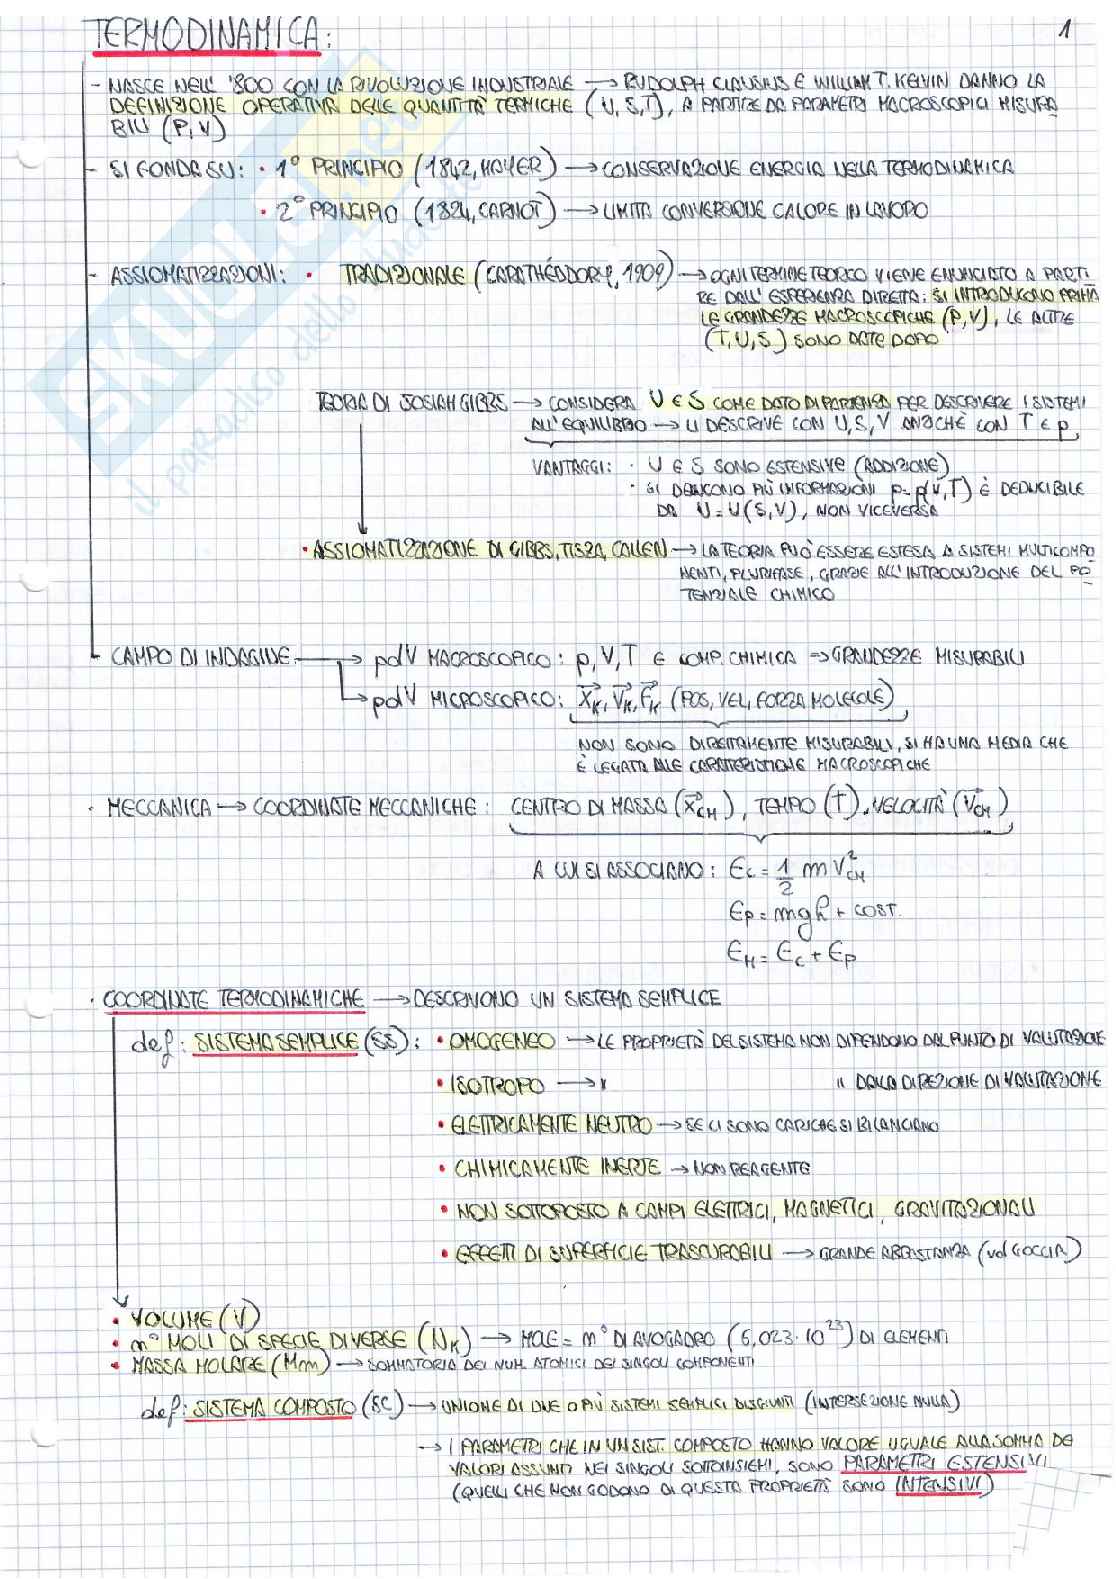 TERMODINAMICA:
1
- NASCE NELL' '800 CON LA RIVOLUZIONE INDUSTRIALE → RUDOLPH CLAUSIUS E WILLIAM T. KELVIN DANNO LA
DEFINIZIONE OPERATIVA DELLE QUANTITÀ TERMICHE (U, S, T), A PARTIRE DA PARAMETRI MACROSCOPICI MISURA
BILI (P, V)
- SI FONDA SU: • 1° PRINCIPIO (1842, MAYER) → CONSERVAZIONE ENERGIA NELLA TERMODINAMICA
• 2° PRINCIPIO (1824, CARNOT) → LIMITA CONVERSIONE CALORE IN LAVORO
- ASSIOMATIZZAZIONI: • TRADIZIONALE (CARATHÉODORY, 1909) → OGNI TERMINE TEORICO VIENE ENUNCIATO A PARTI
RE DALL' ESPERIENZA DIRETTA: SI INTRODUCONO PRIMA
LE GRANDEZZE MACROSCOPICHE (P, V), LE ALTRE
(T, U, S) SONO DATE DOPO
TEORIA DI JOSIAH GIBBS → CONSIDERA U E S COME DATO DI PARTENZA PER DESCRIVERE I SISTEMI
ALL'EQUILIBRIO → LI DESCRIVE CON U, S, V ANZICHÈ CON T E p
VANTAGGI: • U E S SONO ESTENSIVE (ADDIZIONE)
• SI DANNO PIÙ INFORMAZIONI p = p(V, T) È DEDUCIBILE
DA U = U(S, V), NON VICEVERSA
• ASSIOMATIZZAZIONE DI GIBBS, TISZA, CALLEN → LA TEORIA PUÒ ESSERE ESTESA A SISTEMI MULTICOMPO
NENTI, PLURIFASE, GRAZIE ALL'INTRODUZIONE DEL PO
TENZIALE CHIMICO
- CAMPO DI INDAGINE → pdV MACROSCOPICO: p, V, T E COMP. CHIMICA → GRANDEZZE MISURABILI
→ pdV MICROSCOPICO: X⃗ₖ, V⃗ₖ, F⃗ₖ (POS, VEL, FORZA MOLECOLE)
NON SONO DIRETTAMENTE MISURABILI, SI HA UNA MEDIA CHE
È LEGATA ALLE CARATTERISTICHE MACROSCOPICHE
• MECCANICA → COORDINATE MECCANICHE: CENTRO DI MASSA (X⃗CM), TEMPO (T), VELOCITÀ (V⃗CM)
A CUI SI ASSOCIANO: Ec = 1/2 m V²CM
Ep = mgh + COST.
EM = Ec + Ep
• COORDINATE TERMODINAMICHE → DESCRIVONO UN SISTEMA SEMPLICE
def: SISTEMA SEMPLICE (SS): • OMOGENEO → LE PROPRIETÀ DEL SISTEMA NON DIPENDONO DAL PUNTO DI VALUTAZIONE
• ISOTROPO → " " DALLA DIREZIONE DI VALUTAZIONE
• ELETTRICAMENTE NEUTRO → SE CI SONO CARICHE SI BILANCIANO
• CHIMICAMENTE INERTE → NON REAGENTE
• NON SOTTOPOSTO A CAMPI ELETTRICI, MAGNETICI, GRAVITAZIONALI
• EFFETTI DI SUPERFICIE TRASCURABILI → GRANDE ABBASTANZA (vol GOCCIA)
• VOLUME (V)
• n° MOLI DI SPECIE DIVERSE (Nₖ) → MOLE = n° DI AVOGADRO (6,023·10²³) DI ELEMENTI
• MASSA MOLARE (Mm) → SOMMATORIA DEI NUM. ATOMICI DEI SINGOLI COMPONENTI
def: SISTEMA COMPOSTO (SC) → UNIONE DI DUE O PIÙ SISTEMI SEMPLICI DISGIUNTI (INTERSEZIONE NULLA)
→ I PARAMETRI CHE IN UN SIST. COMPOSTO HANNO VALORE UGUALE ALLA SOMMA DEI
VALORI ASSUNTI NEI SINGOLI SOTTOINSIEMI, SONO PARAMETRI ESTENSIVI
(QUELLI CHE NON GODONO DI QUESTA PROPRIETÀ SONO INTENSIVI)
SKUOLA.net
il paradiso dello studente